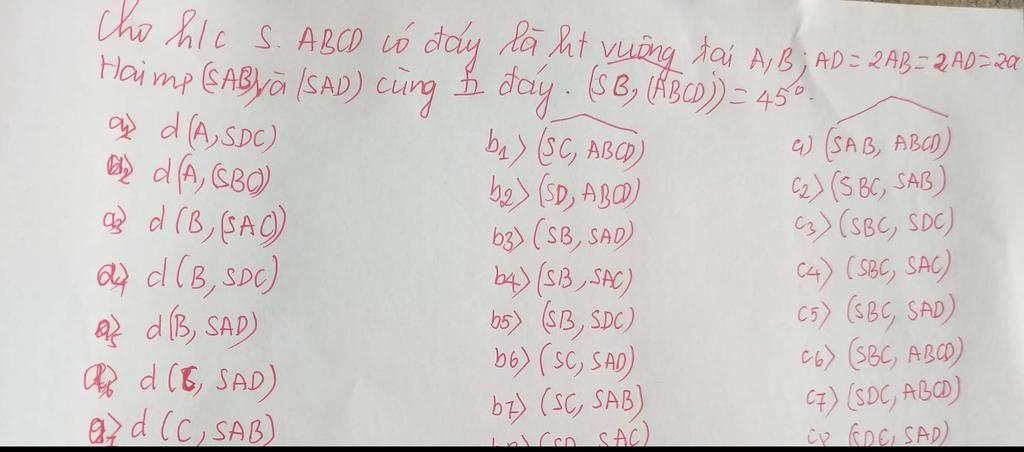 Cho h/c S. ABCD có đáy là ht vuông tại A, B; AD = 2AB = 2AD = 2a
Hai mp (SAB) và (SAD) cùng ⊥ đáy. (SB, (ABCD)) = 45°.
a1) d(A, SDC)
a2) d(A, (SBC))
a3) d(B, (SAC))
a4) d(B, SDC)
a5) d(B, SAD)
a6) d(C, SAD)
a7) d(C, SAB)
b1) (SC, ABCD)
b2) (SD, ABCD)
b3) (SB, SAD)
b4) (SB, SAC)
b5) (SB, SDC)
b6) (SC, SAD)
b7) (SC, SAB)
(SD, SAC)
c1) (SAB, ABCD)
c2) (SBC, SAB)
c3) (SBC, SDC)
c4) (SBC, SAC)
c5) (SBC, SAD)
c6) (SBC, ABCD)
c7) (SDC, ABCD)
c8 (SDC, SAD)